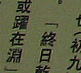 （初九
「終日乾
或躍在淵」